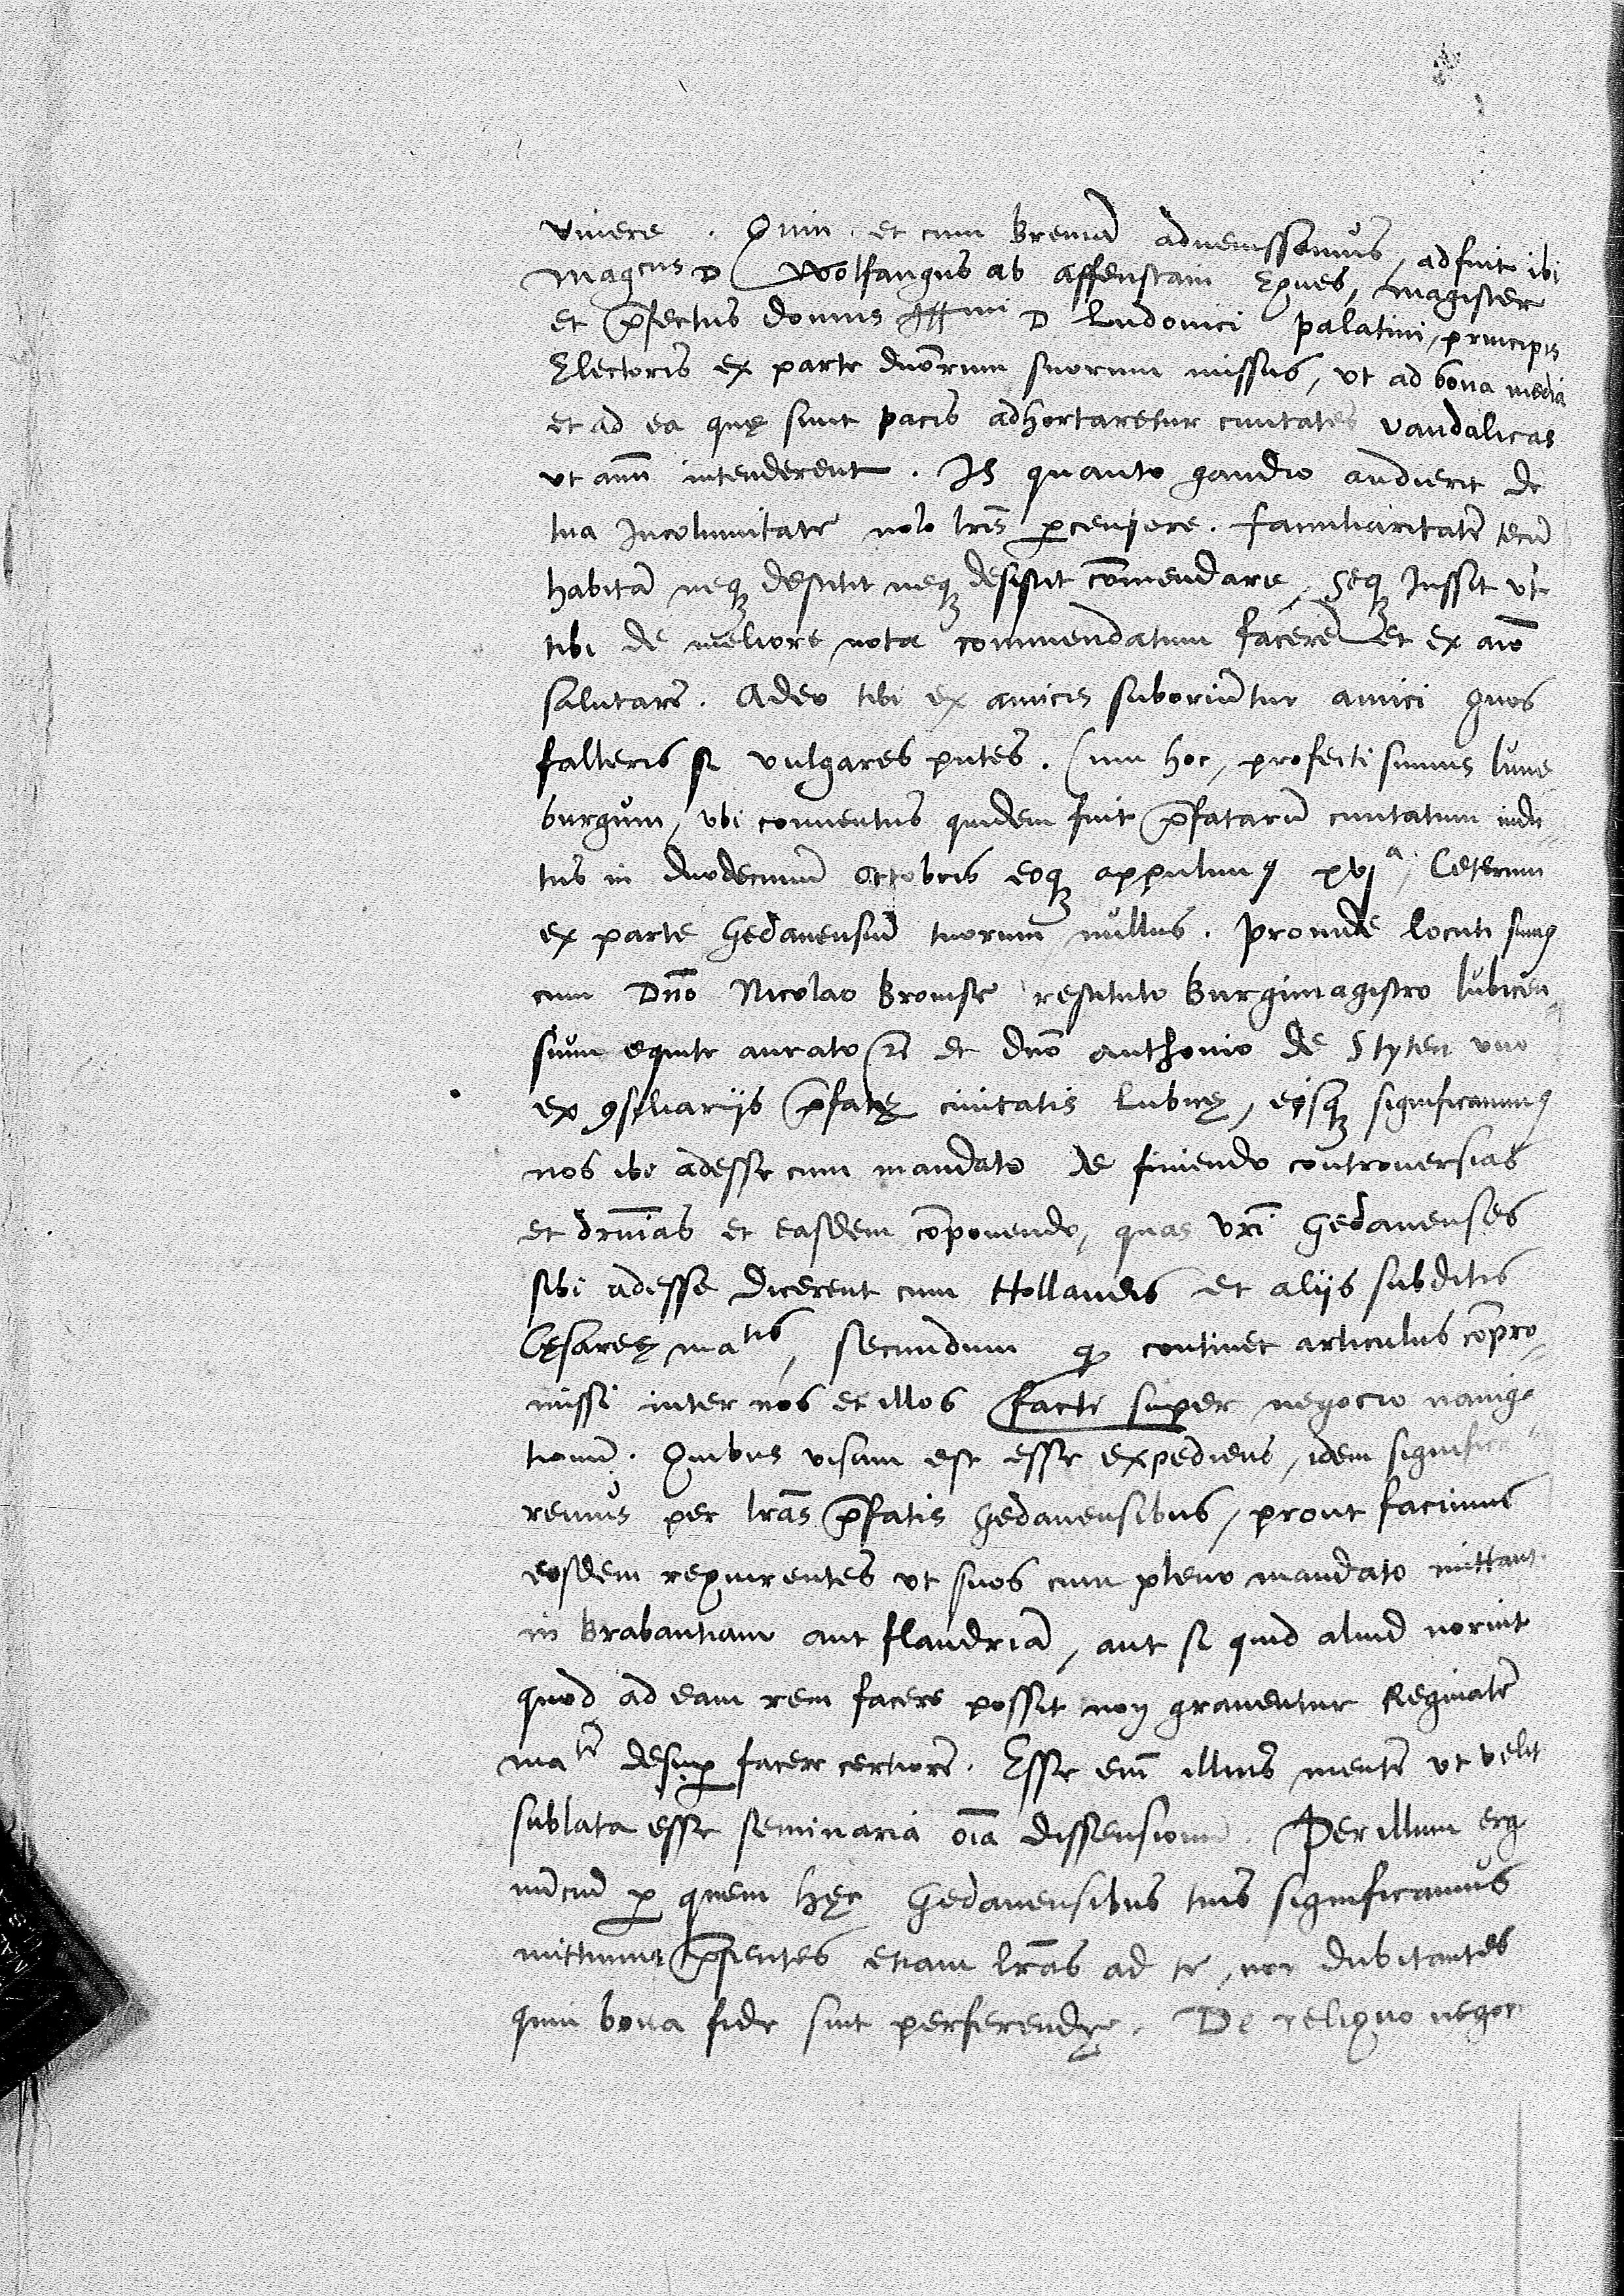 vivere . Quin et cum Bremã advenissemus, adfuit ibi
Magcus D Wolfangus ab Affenstain Eques, magister
et p̃fectus domus D Ludovici palatini, principis
Electoris ex parte dnõrum suorum missus, ut ad bona media
et ad ea quę sunt pacis adhortaretur civitates vandalicas
ut aĩm intenderent. Is quanto gaudio audierit de
tua Incolumitate nolo lr̃is ꝑcensere. familiaritatẽ tecũ
habitã neqꝫ destitit neqꝫ desistit cõmendare, seqꝫ Iussit ut
tibi de meliore nota commendatum facerẽ et ex aĩo
salutarẽ. Adeo tibi ex amicis suboriũtur amici quos
falleris si vulgares putes. Cum hoc, profecti sumus lune
burgum, ubi conventus quidem fuit p̃fatarũ civitatum indic
tus in duodecimũ octobris eoqꝫ appulimꝰ xvjᵃ, Ceterum
ex parte Gedanensiũ tuorum nullus. Proinde locuti sumꝰ
cum Dño Nicolao Bromse restituto Burgimagistro lubicen
sium equite aurato et dño Anthonio de Styten uno
ex ꝯsiliariis p̃fatę civitatis Lubicę, eisqꝫ significavimꝰ
nos ibi adesse cum mandato de finiendo controversias
et dr̃nias et easdem cõponendo, quas vr̃i Gedanenses
sibi adesse dicerent cum Hollandis et aliis subditis
Cęsareę matis, secundum ꝙ continet articulus cõpro
missi inter nos et illos facti super negocio naviga
tionũ. Quibus visum est esse expediens, idem significa
remus per lr̃as p̃fatis Gedanensibus, prout facimus
eosdem requirentes ut suos cum pleno mandato mittant
in Brabantiam aut flandriã, aut si quid aliud norint
quod ad eam rem facere possit non graventur Reginalẽ
matẽ desuꝑ facere certiorẽ. Esse eñi illius mentẽ ut velit
sublata esse seminaria oĩa dissensionũ. Per illum ergo
nũciũ ꝑ quem hęc Gedanensibus tuis significamus
mittimus p̃sentes etiam lr̃as ad te, non dubitantes
quin bona fide sint perferendę. De reliquo negoci